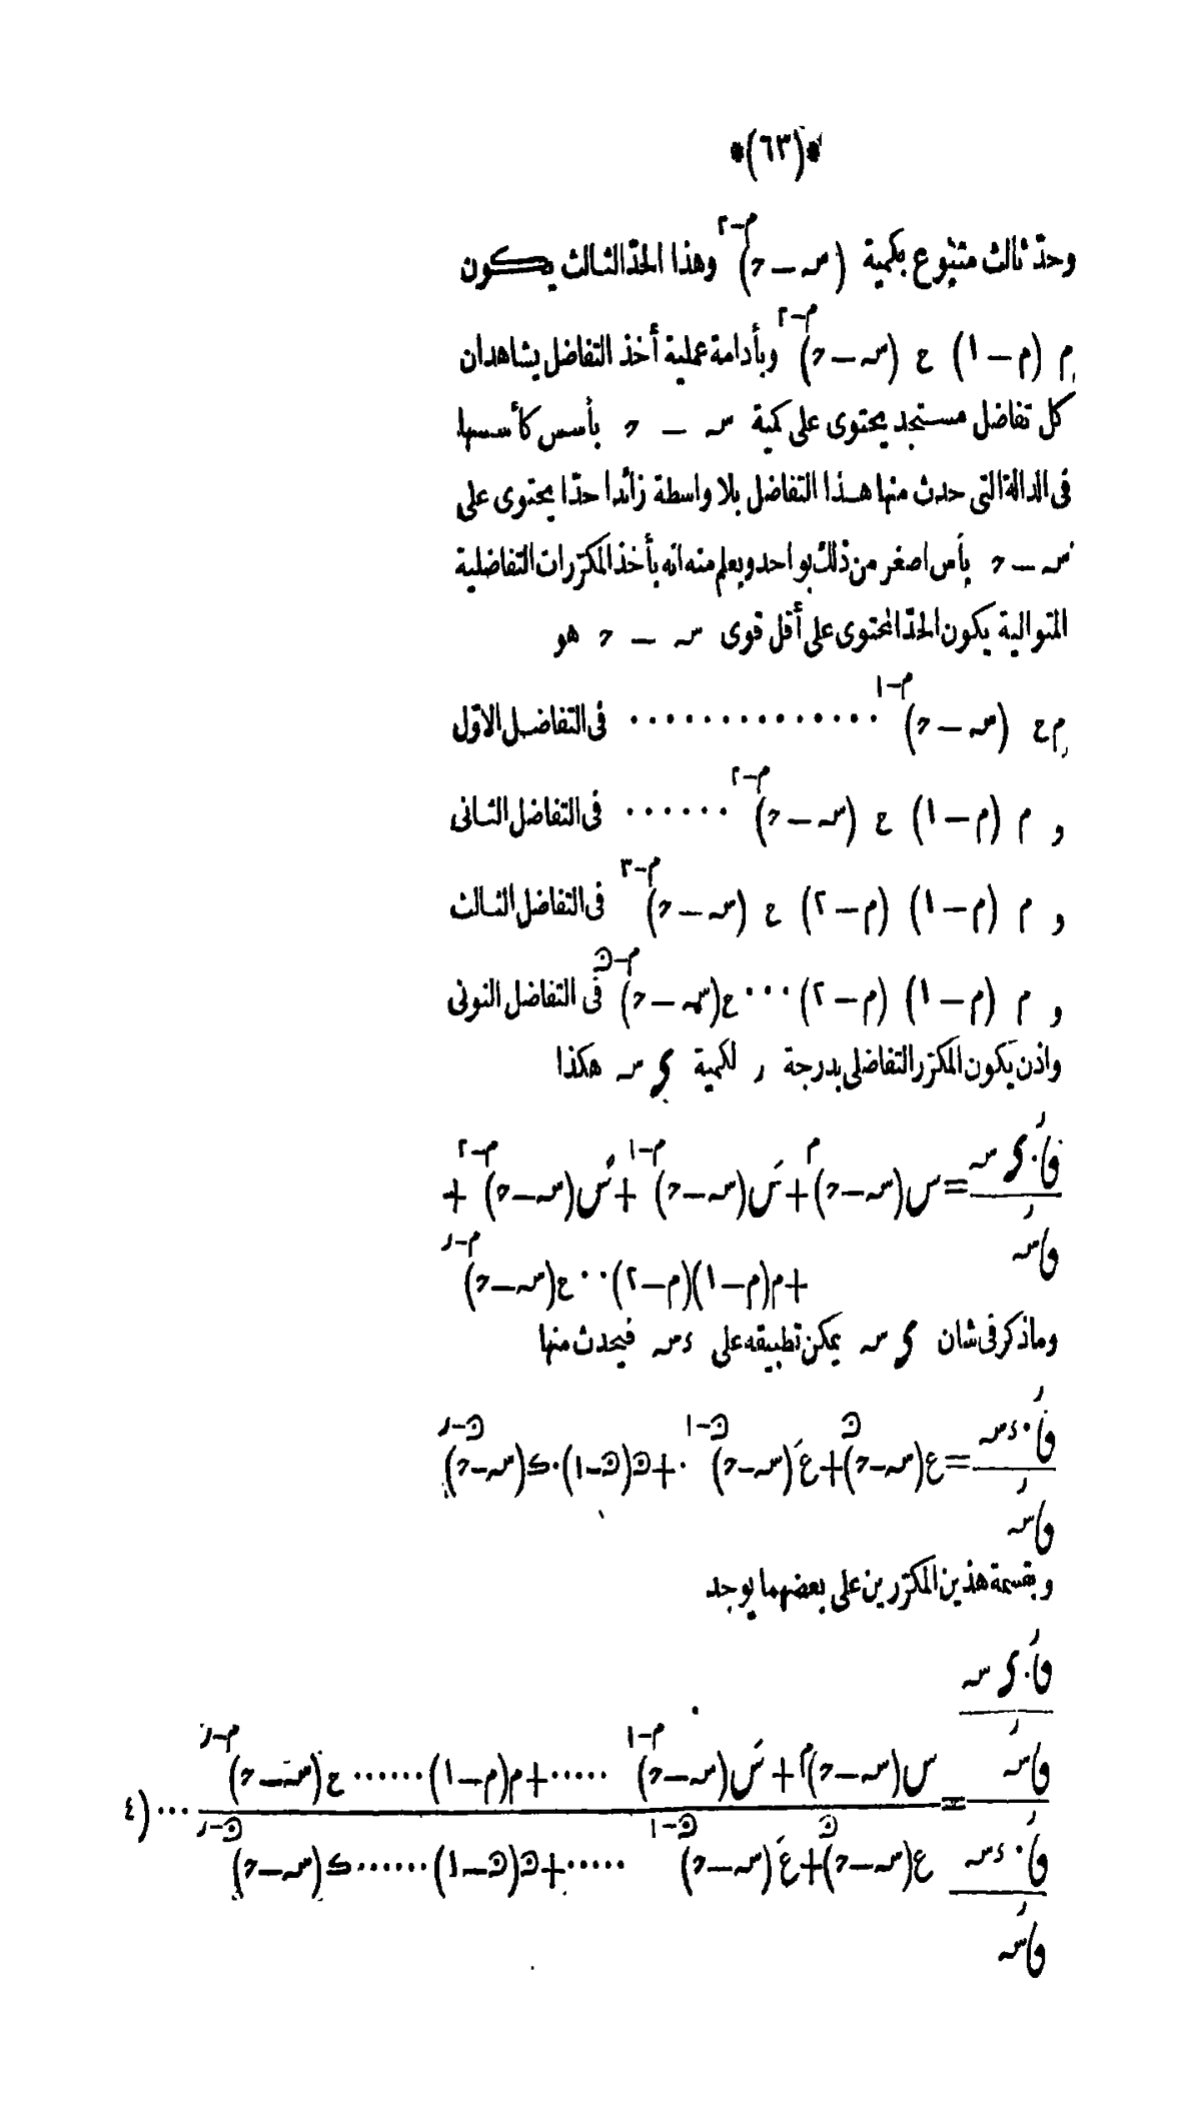 *(٦٣)*
وحدّ ثالث متبوع بكمية (س — ح)^م-٢ وهذا الحدّ الثالث يكون
م (م — ١) ع (س — ح)^م-٢ وبأدامة عملية أخذ التفاضل يشاهد ان
كل تفاضل مستجد يحتوى على كمية س — ح بأسس كأسسها
فى الدالة التى حدث منها هذا التفاضل بلا واسطة زائدا حدّا يحتوى على
س — ح بأس اصغر من ذلك بواحد ويعلم منه انه بأخذ المكرّرات التفاضلية
المتوالية يكون الحدّ المحتوى على أقل قوى س — ح هو
م ع (س — ح)^م-١ ·············· فى التفاضل الاوّل
و م (م — ١) ع (س — ح)^م-٢ ······ فى التفاضل الثانى
و م (م — ١) (م — ٢) ع (س — ح)^م-٣ فى التفاضل الثالث
و م (م — ١) (م — ٢) ··· ع (س — ح)^م-ن فى التفاضل النونى
واذن يكون المكرّر التفاضلى بدرجة ر لكمية ى س هكذا
فا^ر . ى س / فا س^ر = س(س—ح)^م + سَ(س—ح)^م-١ + سً(س—ح)^م-٢ +
+م(م—١)(م—٢)··ع(س—ح)^م-ر
وماذكر فى شان ى س يمكن تطبيقه على ء س فيحدث منها
فا^ر . ء س / فا س^ر = ع(س—ح)^ن + عَ(س—ح)^ن-١ ·+ن(ن—١)·ك(س—ح)^ن-ر
وبقسمة هذين المكرّرين على بعضهما يوجد
فا^ر . ى س
فا س^ر = س(س—ح)^م + سَ(س—ح)^م-١ ·····+م(م—١)······ع(س—ح)^م-ر
فا^ر . ء س / ع(س—ح)^ن + عَ(س—ح)^ن-١ ·····+ن(ن—١)······ك(س—ح)^ن-ر ···(٤
فا س^ر